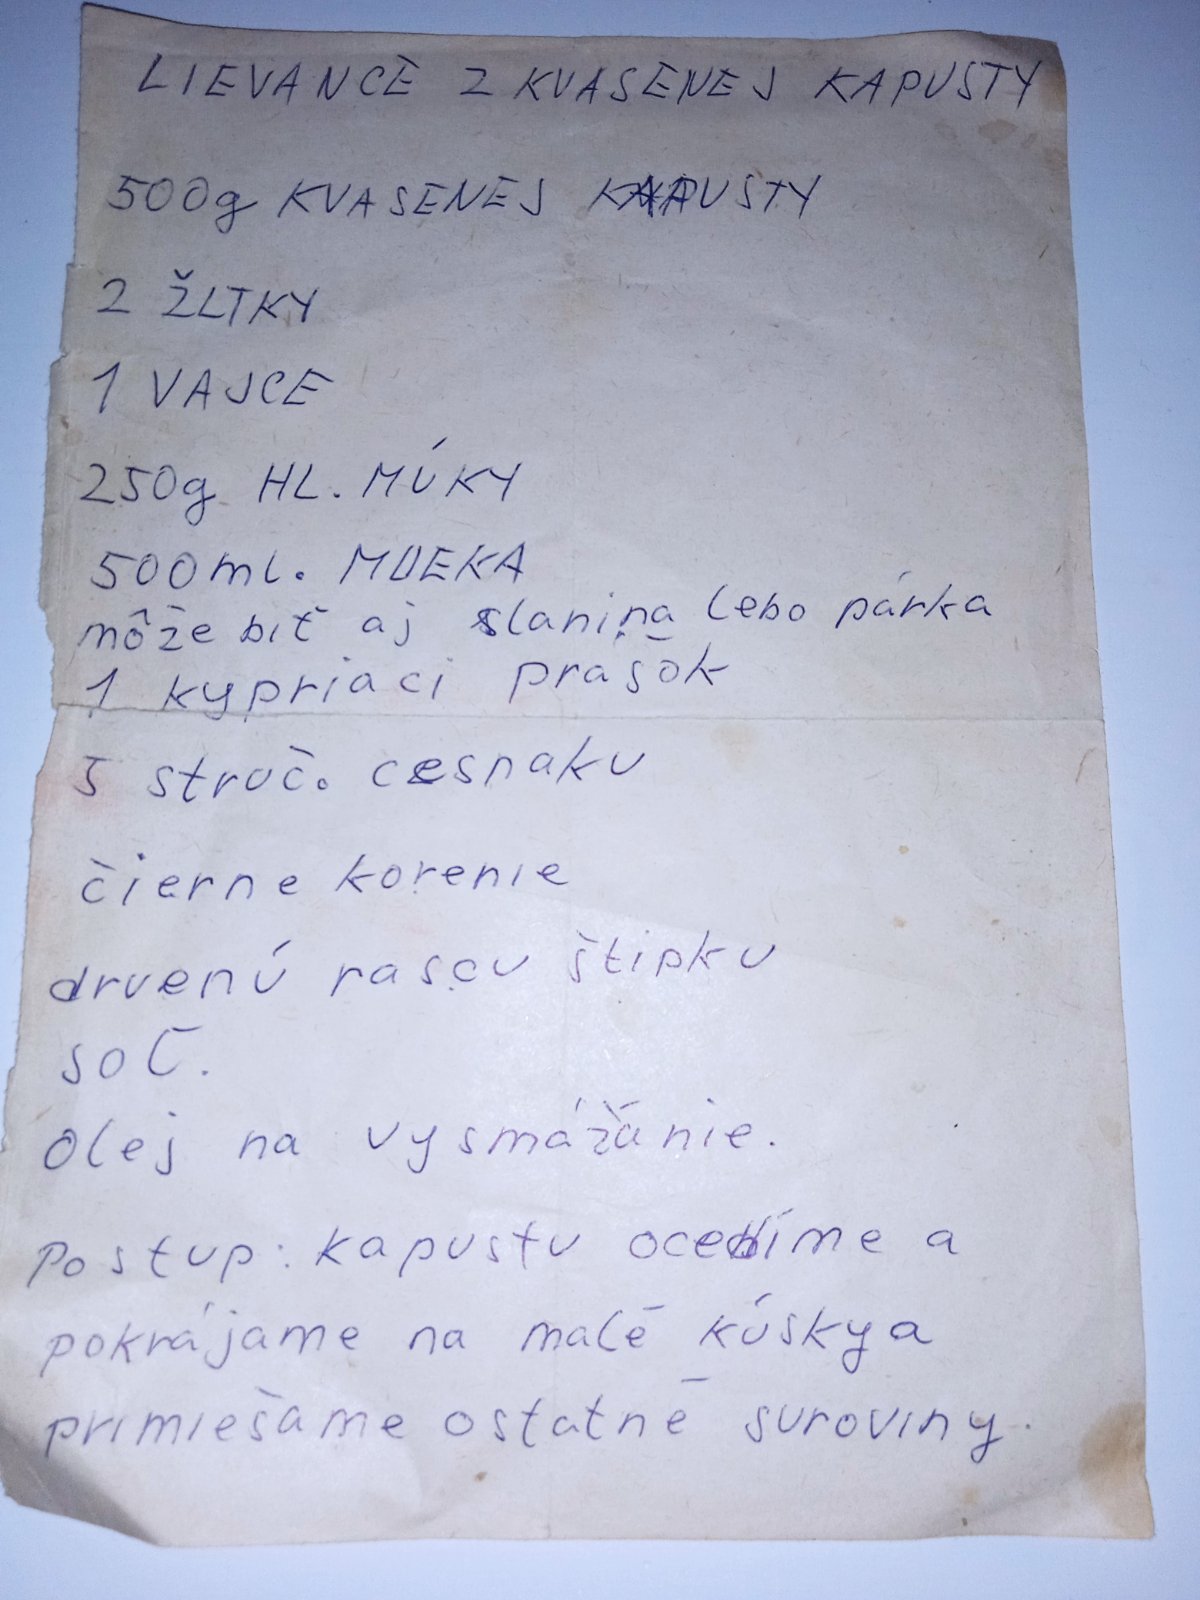 LIEVANCE Z KVASENEJ KAPUSTY
500g KVASENEJ KAPUSTY
2 ŽLTKY
1 VAJCE
250g HL. MÚKY
500ml. MUEKA
môže biť aj slanina lebo párka
1 kypriaci prašok
5 struč. cesnaku
čierne korenie
drvenú rascu štipku
soľ.
Olej na vysmážánie.
Postup: kapustu ocedíme a
pokrájame na malé kúsky a
primiešame ostatné suroviny.